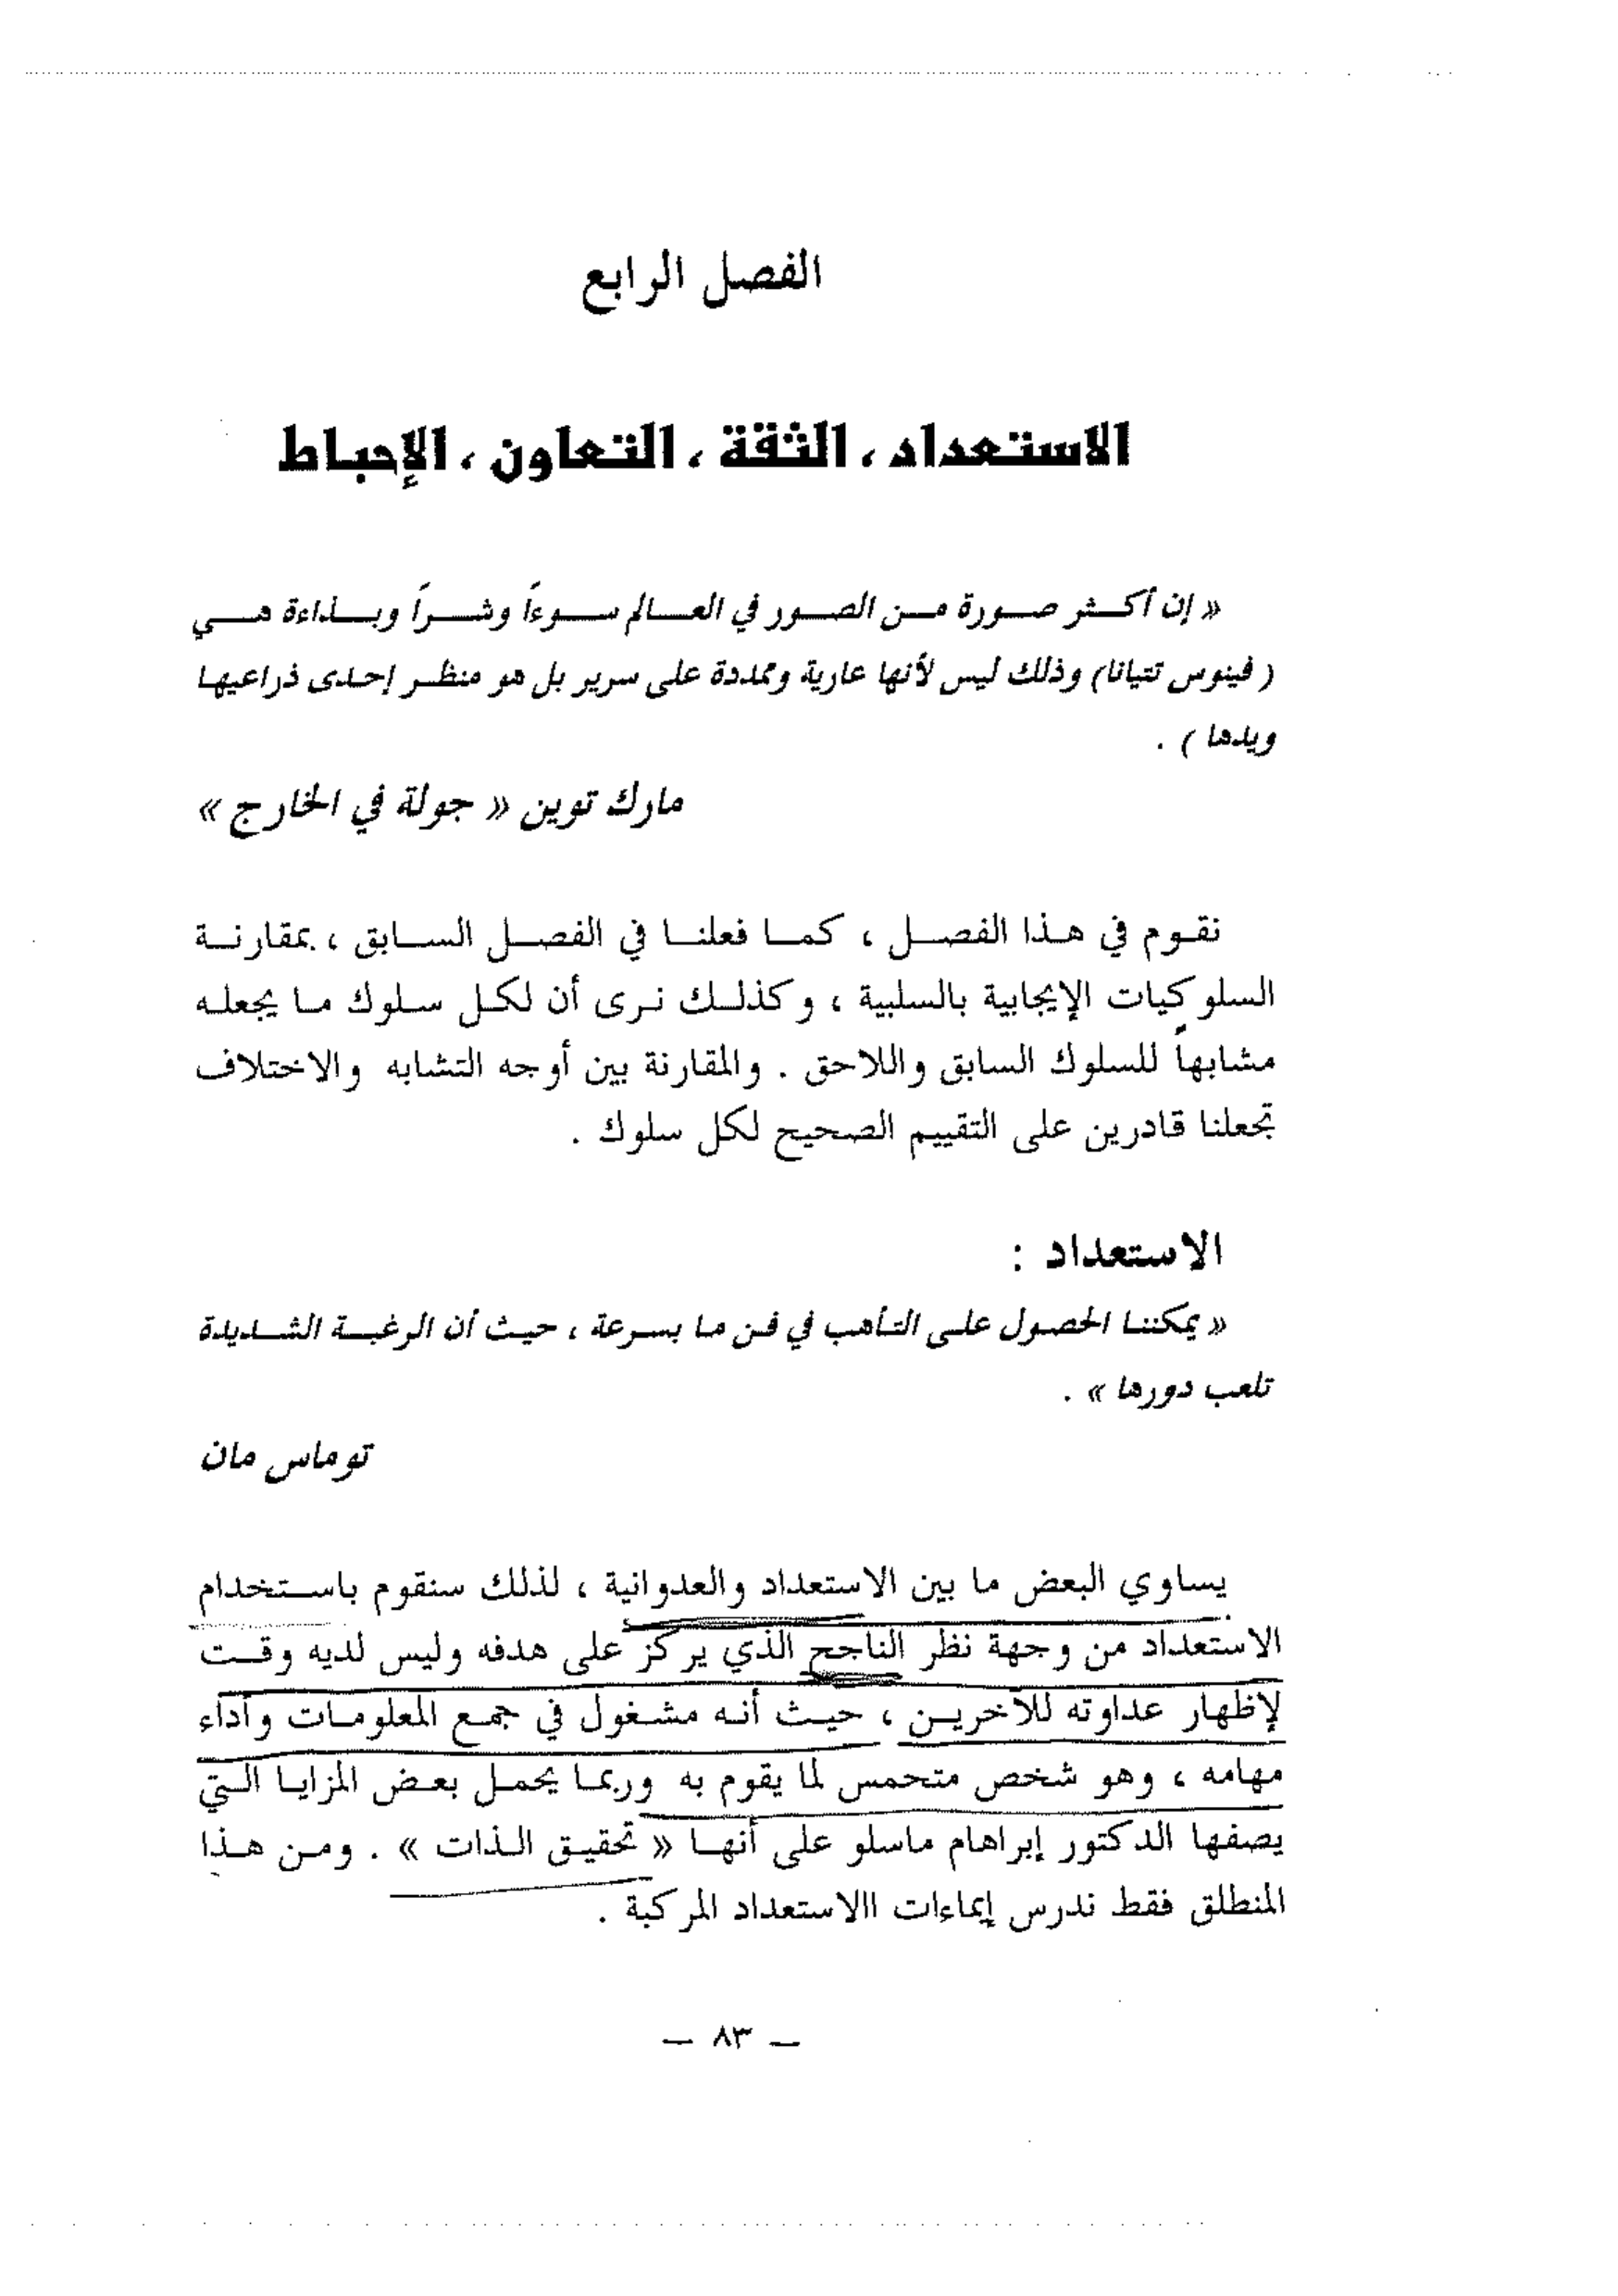 الفصل الرابع
الاستعداد، الثقة، التعاون، الإحباط
« إن أكثر صورة من الصور في العالم سوءاً وشراً وبذاءة هي
( فينوس تتيانا) وذلك ليس لأنها عارية وممددة على سرير بل هو منظر إحدى ذراعيها
ويدها ) .
مارك توين « جولة في الخارج »
نقوم في هذا الفصل ، كما فعلنا في الفصل السابق ، بمقارنة
السلوكيات الإيجابية بالسلبية ، وكذلك نرى أن لكل سلوك ما يجعله
مشابهاً للسلوك السابق واللاحق . والمقارنة بين أوجه التشابه والاختلاف
تجعلنا قادرين على التقييم الصحيح لكل سلوك .
الاستعداد :
« يمكننا الحصول على التأهب في فن ما بسرعة ، حيث أن الرغبة الشديدة
تلعب دورها » .
توماس مان
يساوي البعض ما بين الاستعداد والعدوانية ، لذلك سنقوم باستخدام
الاستعداد من وجهة نظر الناجح الذي يركز على هدفه وليس لديه وقت
لإظهار عداوته للآخرين ، حيث أنه مشغول في جمع المعلومات وأداء
مهامه ، وهو شخص متحمس لما يقوم به وربما يحمل بعض المزايا التي
يصفها الدكتور إبراهام ماسلو على أنها « تحقيق الذات » . ومن هذا
المنطلق فقط ندرس إيماءات االاستعداد المركبة .
— ٨٣ —